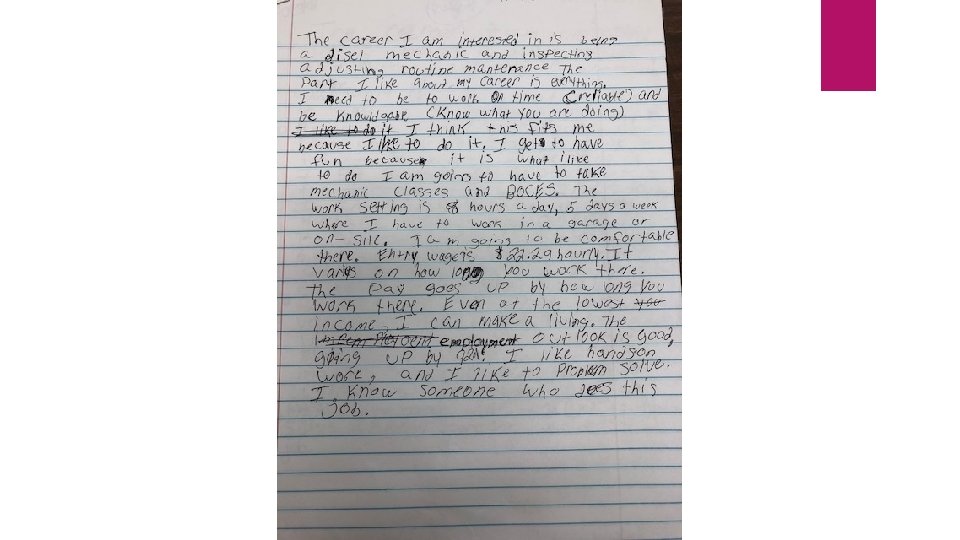 The career I am interested in is being
a disel mechanic and inspecting
adjusting routine mantenance The
Part I like about my career is everything.
I need to be to work on time (reliable) and
be knowldgable (Know what you are doing)
I like to do it I think this fits me
because I like to do it. I get to have
fun because it is what i like
to do I am going to have to take
mechanic classes and BOCES. The
work setting is 8 hours a day, 5 days a week
where I have to work in a garage or
on-site. I am going to be comfortable
there. Entry wage is $22.29 hourly. It
varys on how long you work there.
The pay goes up by how ong you
work there. Even at the lowest
income, I can make a living. The
employment outlook is good,
going up by I like handson
work, and I like to Problem solve.
I know someone who does this
Job.